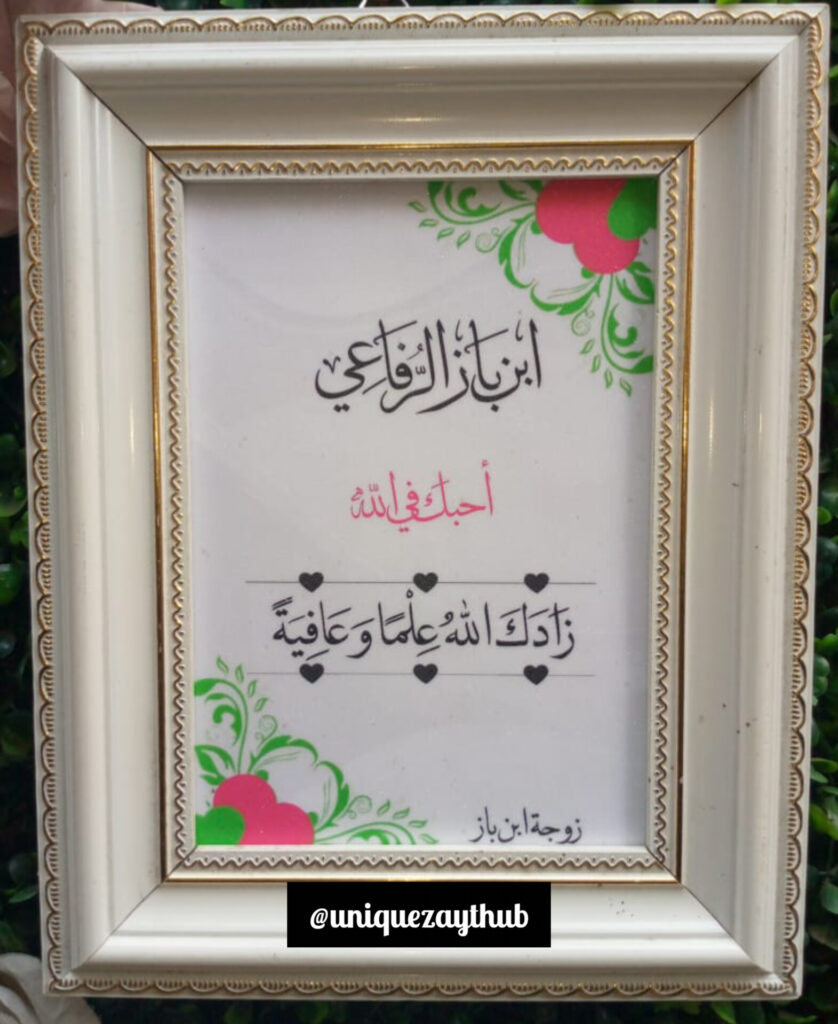 ابن بَاز الرُّفَاعِي
أحبك في الله
زَادَكَ اللهُ عِلْمًا وَ عَافِيَةً
زوجة ابن باز
@uniquezaythub